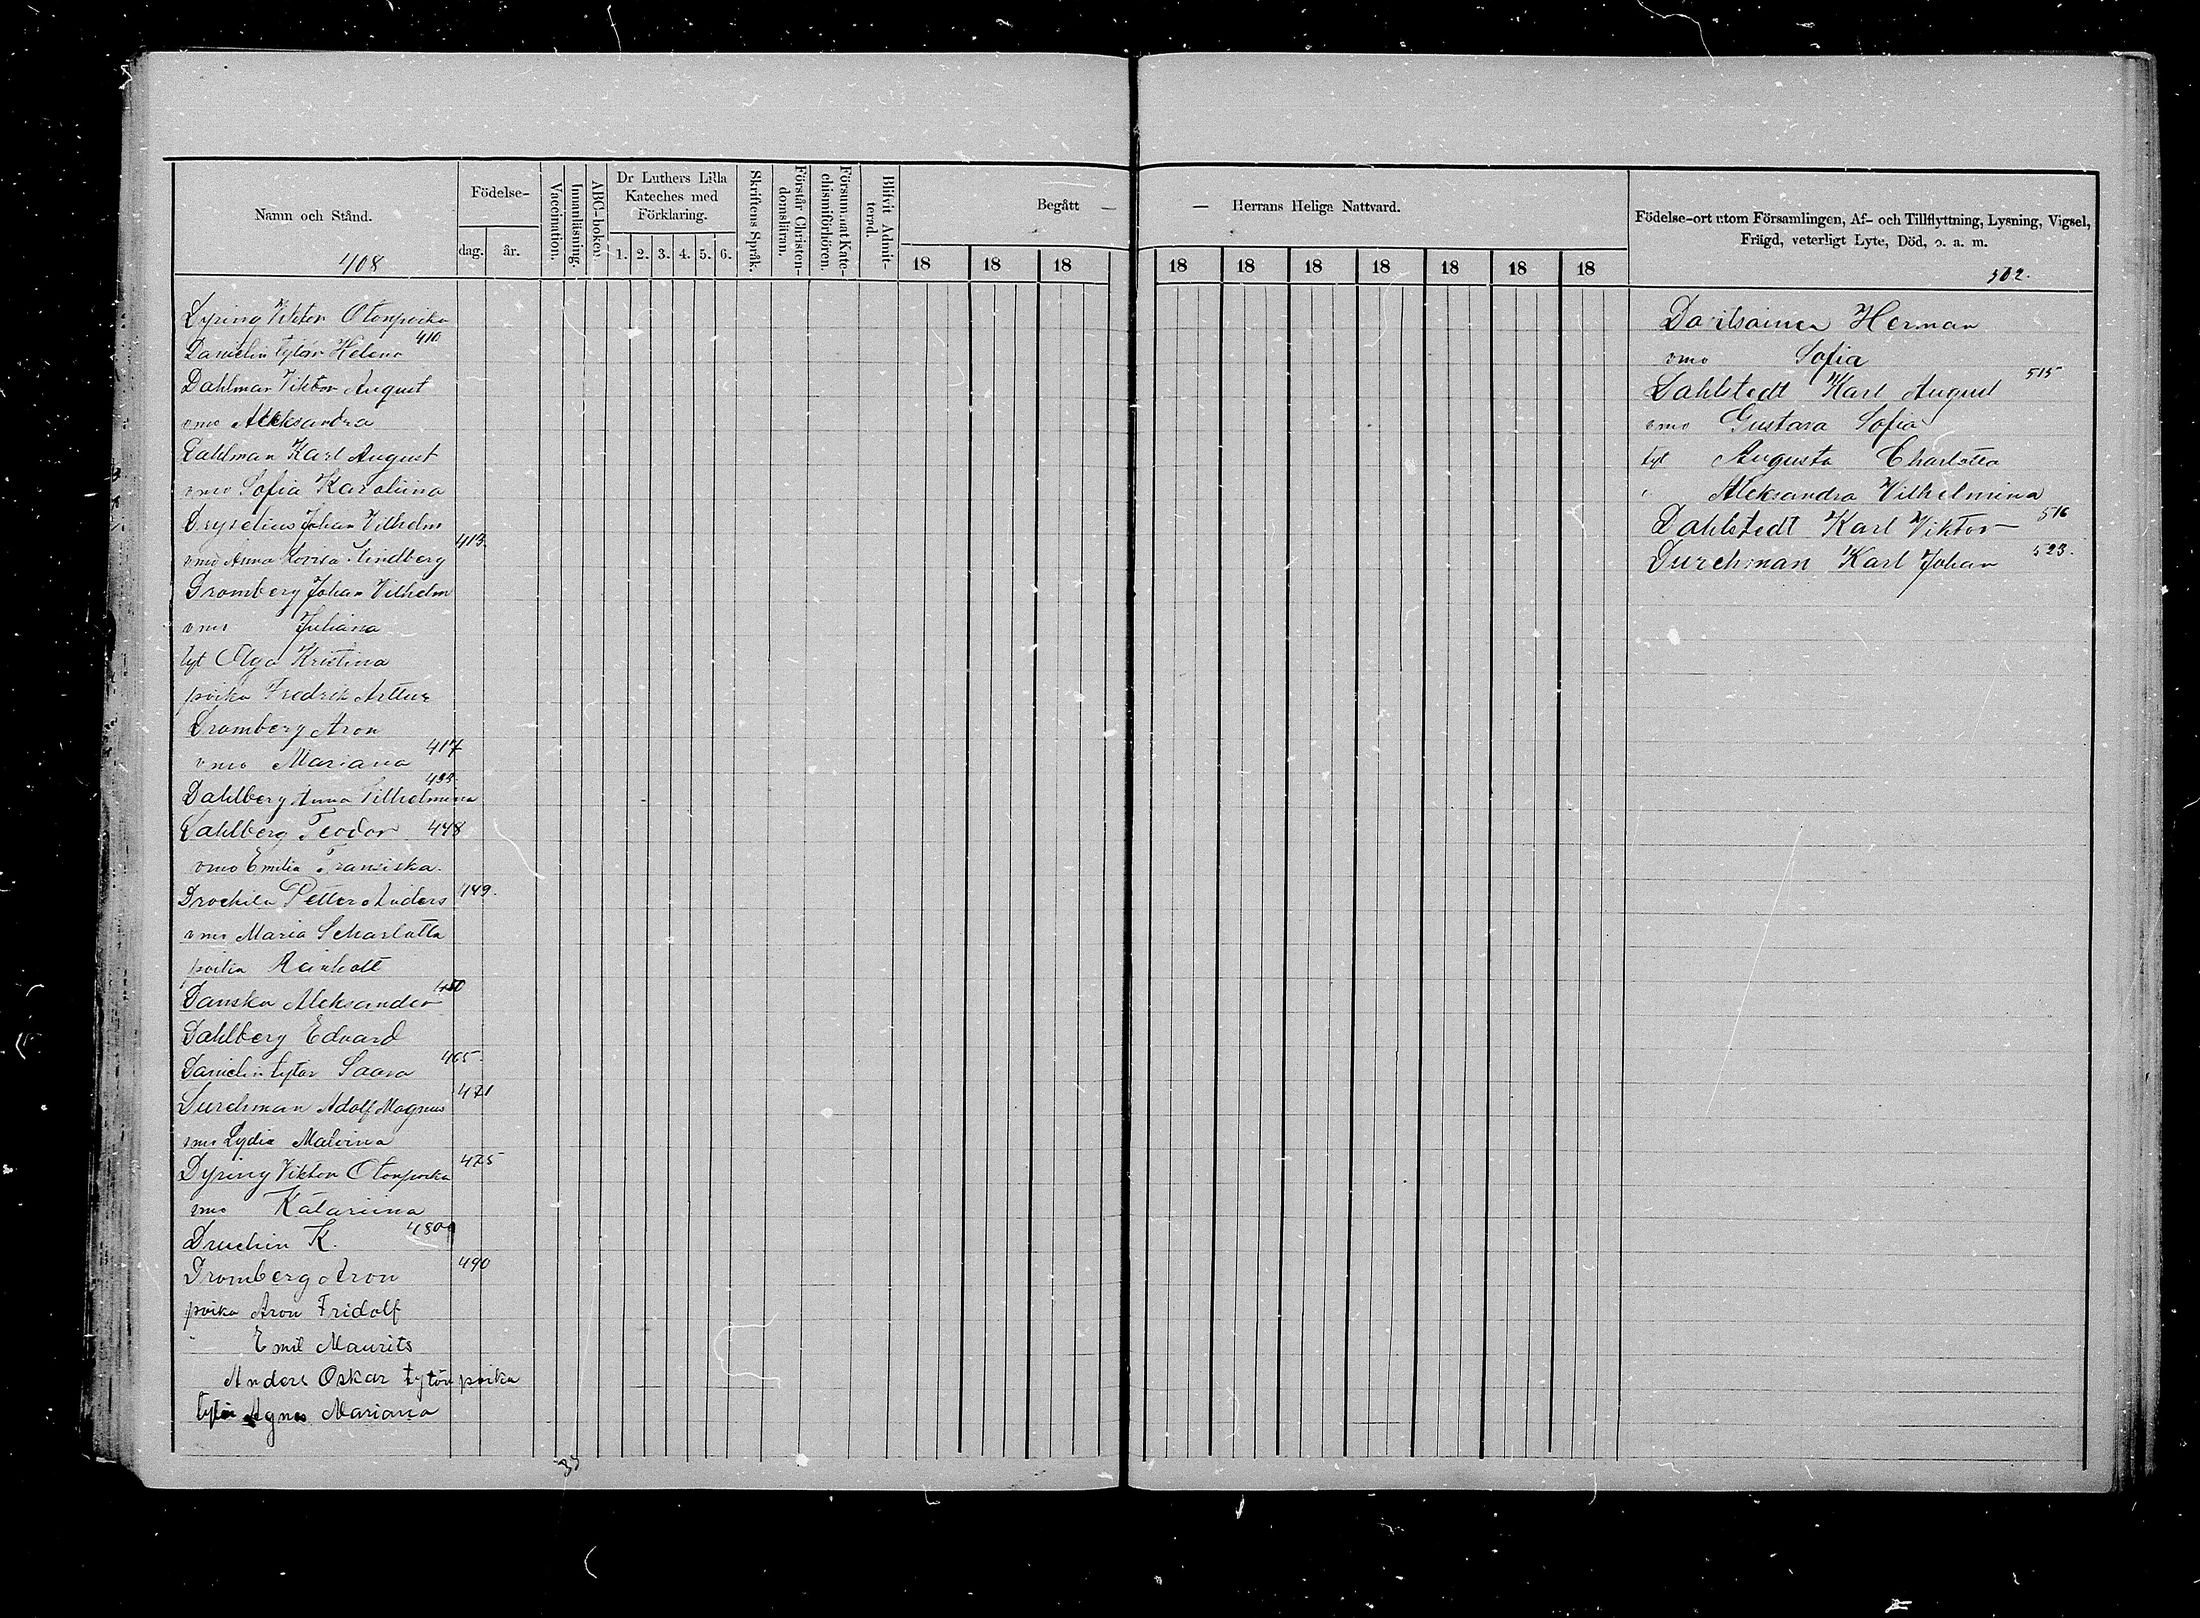 Namn och Stånd.
408
Födelse-
dag. år.
Vaccination.
Innanläsning.
ABC-boken.
Dr Luthers Lilla
Kateches med
Förklaring.
1. 2. 3. 4. 5. 6.
Skriftens Språk.
Förstår Christen-
domsläran.
Försummat Kate-
chismiförhören.
Blifvit Admit-
terad.
Begått — — Herrans Helige Nattvard.
18 18 18 18 18 18 18 18 18 18
Födelse-ort utom Församlingen, Af- och Tillflyttning, Lysning, Vigsel,
Frägd, veterligt Lyte, Död, o. a. m.
502.
Dyring Viktor Otonpoika
Danielin tytär Helena 410
Dahlman Viktor August
vmo Aleksandra
Dahlman Karl August
vmo Sofia Karoliina
Johan Vilhelm
vmo Anna Lovisa Lindberg 413.
Dromberg Johan Vilhelm
vmo Juliana
tyt Olga Kristina
poika Fredrik Arttur
Dromberg Aron
vmo Mariana 417
Dahlberg Anna Vilhelmina 433.
Dahlberg Teodor 448
vmo Emilia Fransiska.
Petter Anders 449.
vmo Maria Scharlotta
poika Reinholt
Danska Aleksander 450
Dahlberg Edvard
Danielin tytär Saara 465
Durchman Adolf Magnus 471
vmo Lydia Malvina
Dyring Viktor Otonpoika 475
vmo Katariina
Druchin K. 480
Dromberg Aron 490
poika Aron Fridolf
" Emil Maurits
Anders Oskar tytön poika
tytär Agnes Mariana
Herman
vmo Sofia
Dahlstedt Karl August 515
vmo Gustava Sofia
tyt Augusta Charlotta
" Aleksandra Vilhelmina
Dahlstedt Karl Viktor 516
Durchman Karl Johan 523.